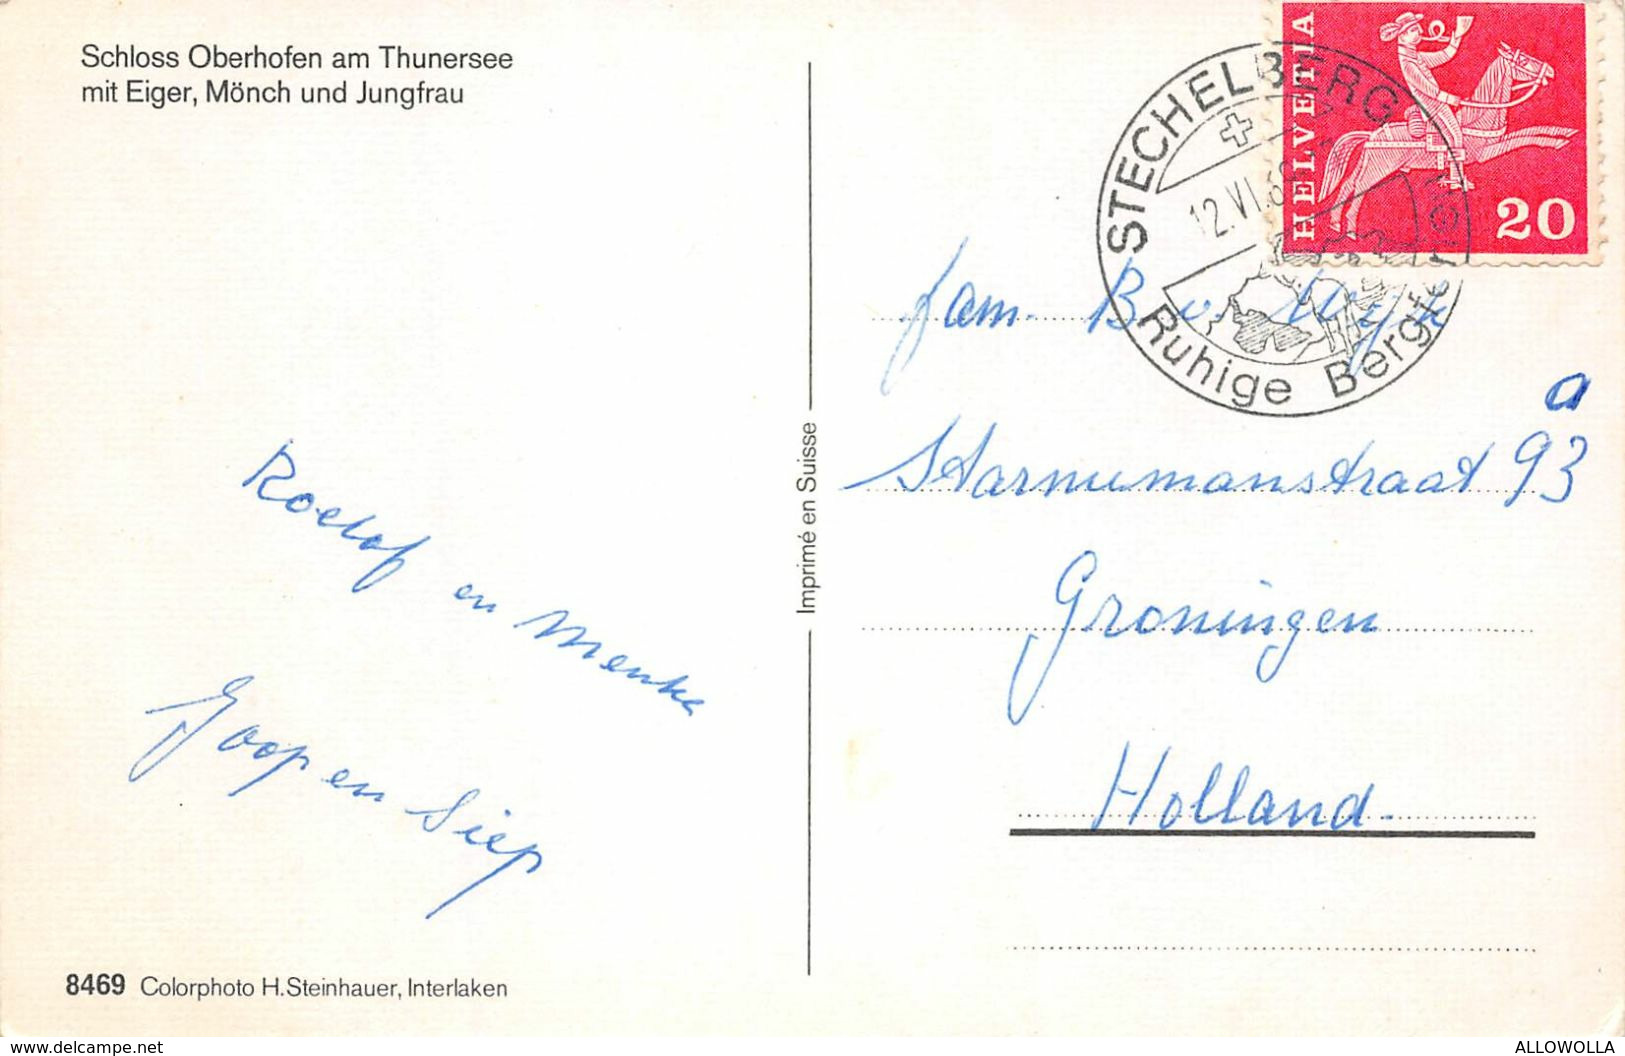 Schloss Oberhofen am Thunersee
mit Eiger, Mönch und Jungfrau
Roelof en Menka
Joop en Siep
8469 Colorphoto H.Steinhauer, Interlaken
Imprimé en Suisse
HELVETIA
20
STECHELBERG
12.VI.6
Ruhige Bergferien
fam. B. v. Wijk
a
Starnumanstraat 93
Groningen
Holland.
www.delcampe.net
ALLOWOLLA